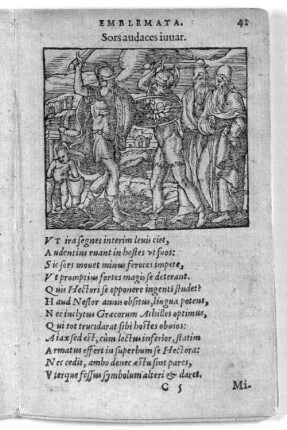 EMBLEMATA. 41
Sors audaces iuvat.
VT ira segnes interim leuis ciet,
Audentius ruant in hostes vt suos:
Sic sors mouet minus feroces impete,
Vt promptius fortes magis se deterant.
Quis Hectori se opponere ingenti studet?
Haud Nestor annis obsitus, lingua potens,
Nec inclytus Græcorum Achilles optimus,
Qui tot trucidarat sibi hostes obuios:
Aiax sed est, cùm lectus inferior, statim
Armatus effert in superbum se Hectora:
Nec cedit, ambo donec æstu sint pares,
Vterque fessus symbolum alteri & daret.
C 5 Mi-